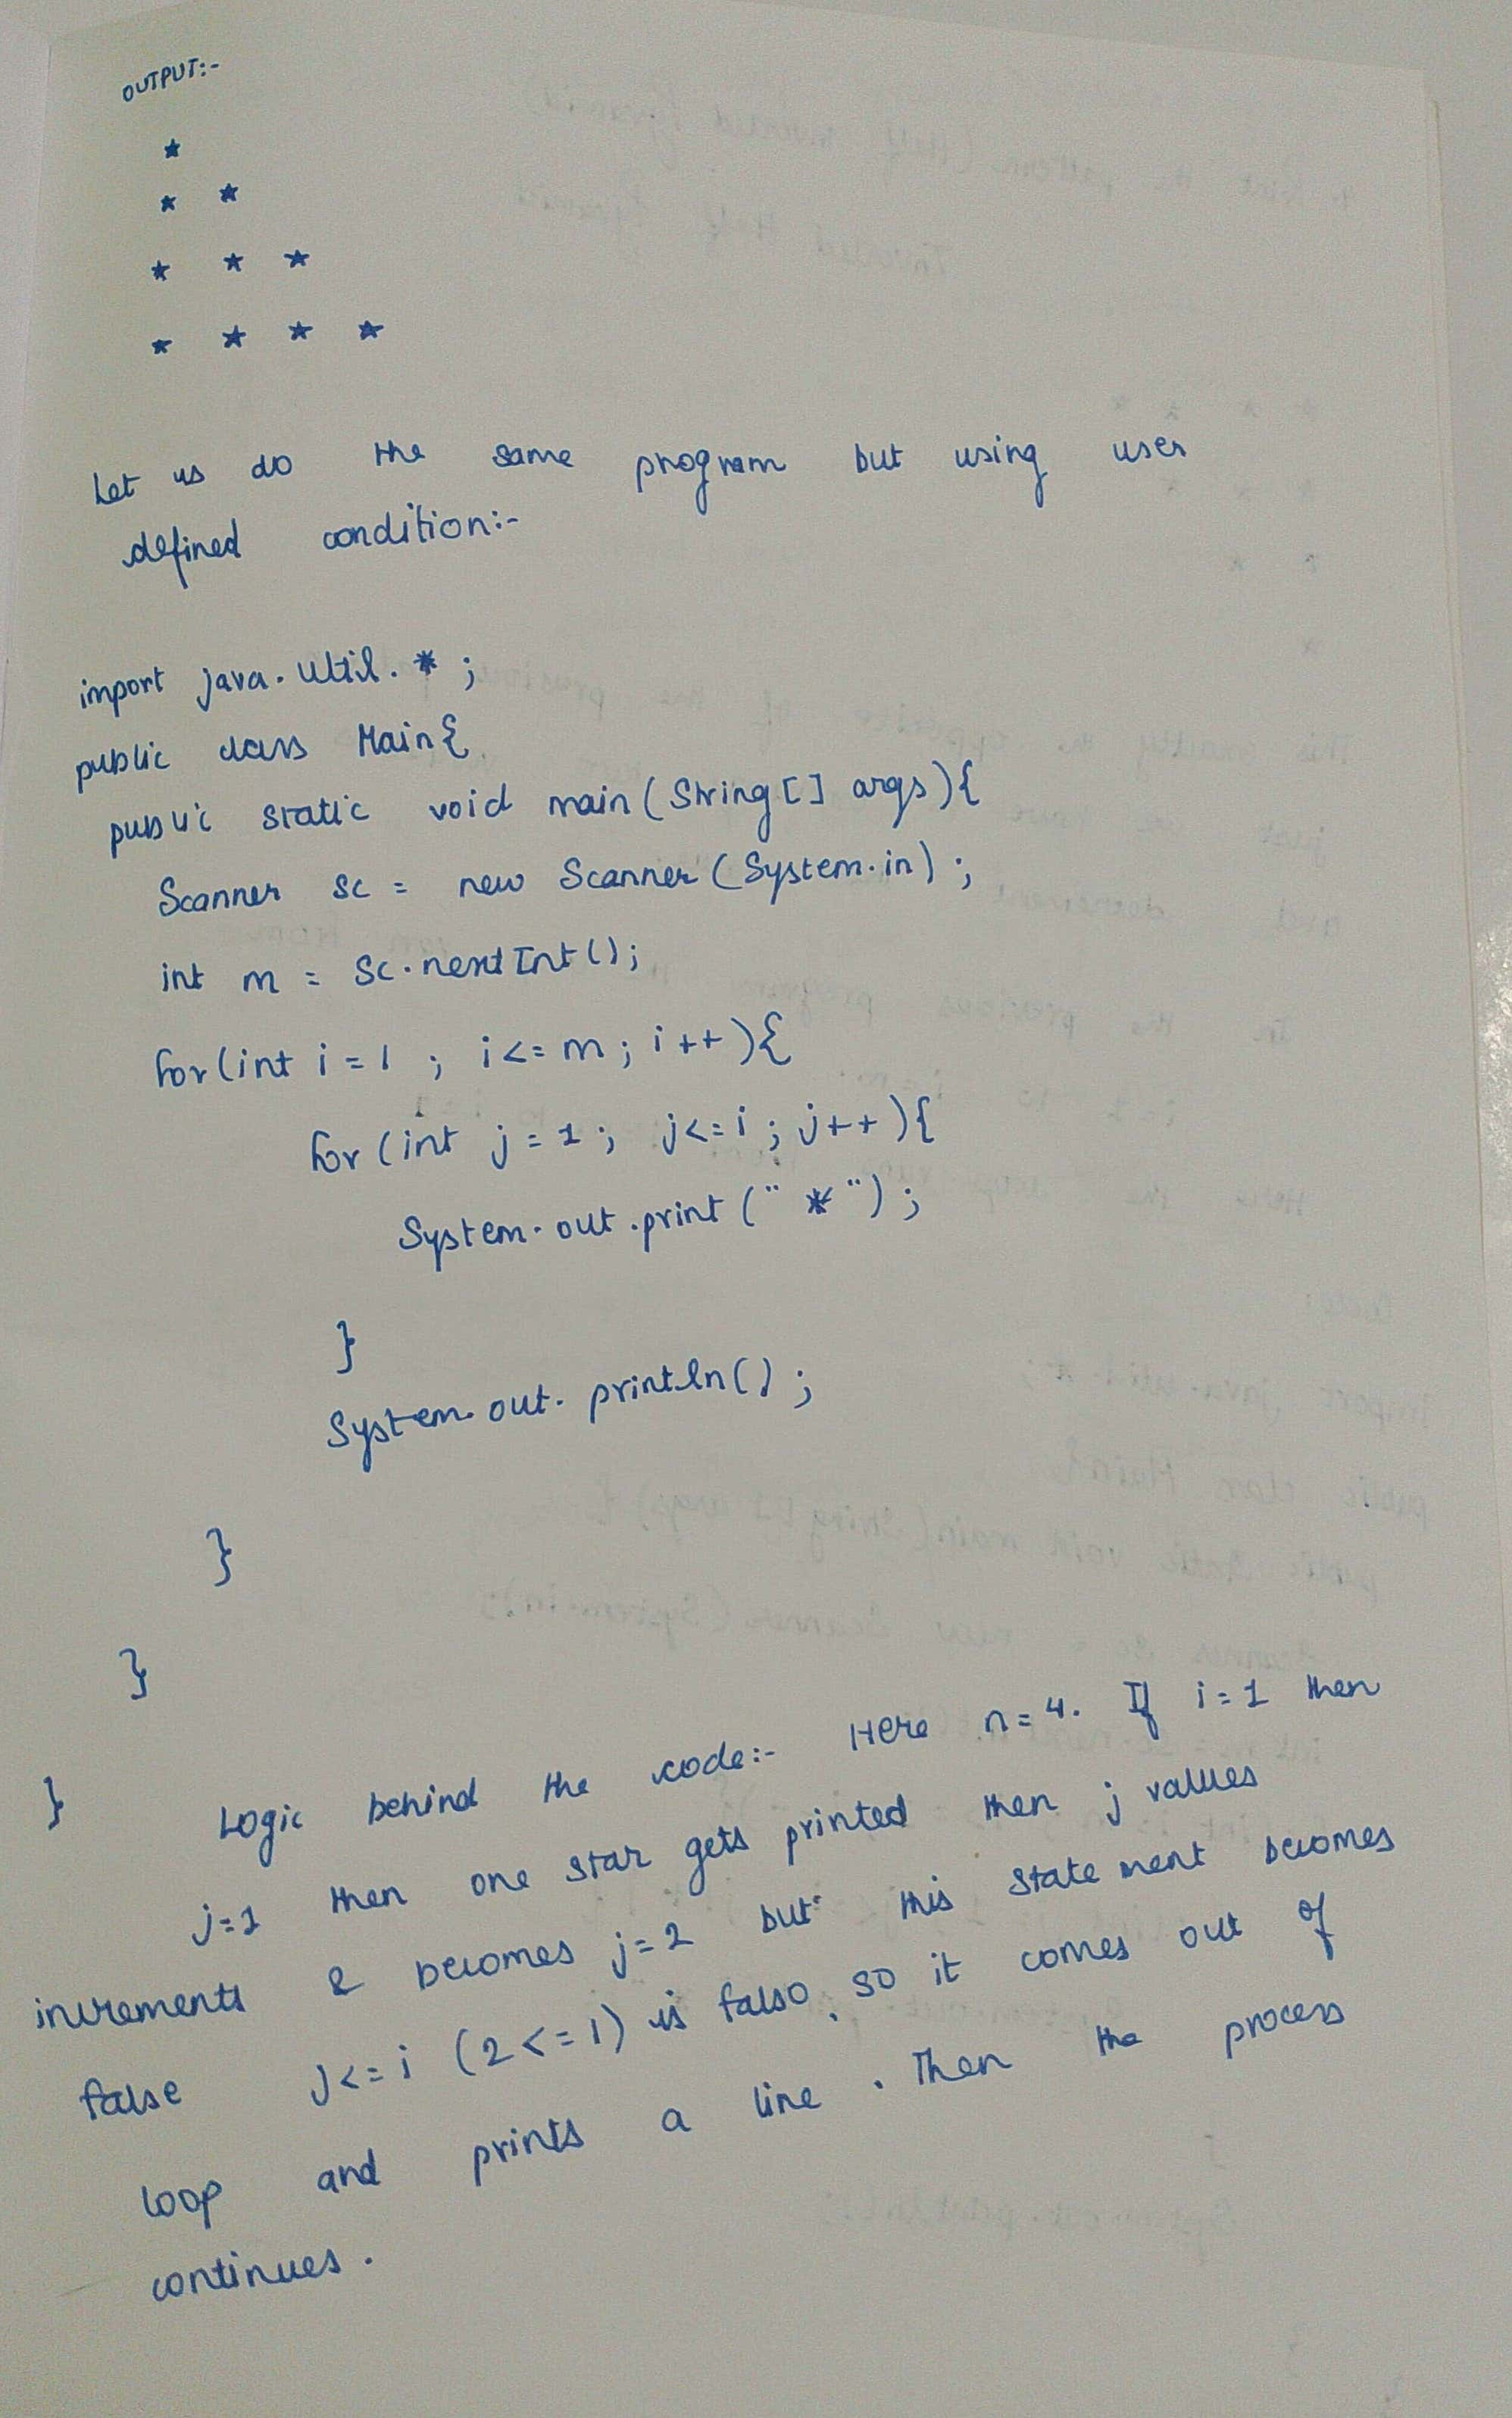 OUTPUT:-
*
* *
* * *
* * * *
Let us do the same program but using user
defined condition:-
import java.util.*;
public class Main{
public static void main(String[] args){
Scanner sc = new Scanner(System.in);
int m = sc.nextInt();
for(int i=1 ; i<=m; i++){
for(int j=1; j<=i; j++){
System.out.print("*");
}
System.out.println();
}
}
} Logic behind the code:- Here n=4. If i=1 then
j=1 then one star gets printed then j values
increments & becomes j=2 but this statement becomes
false j<=i (2<=1) is false, so it comes out of
loop and prints a line. Then the process
continues.